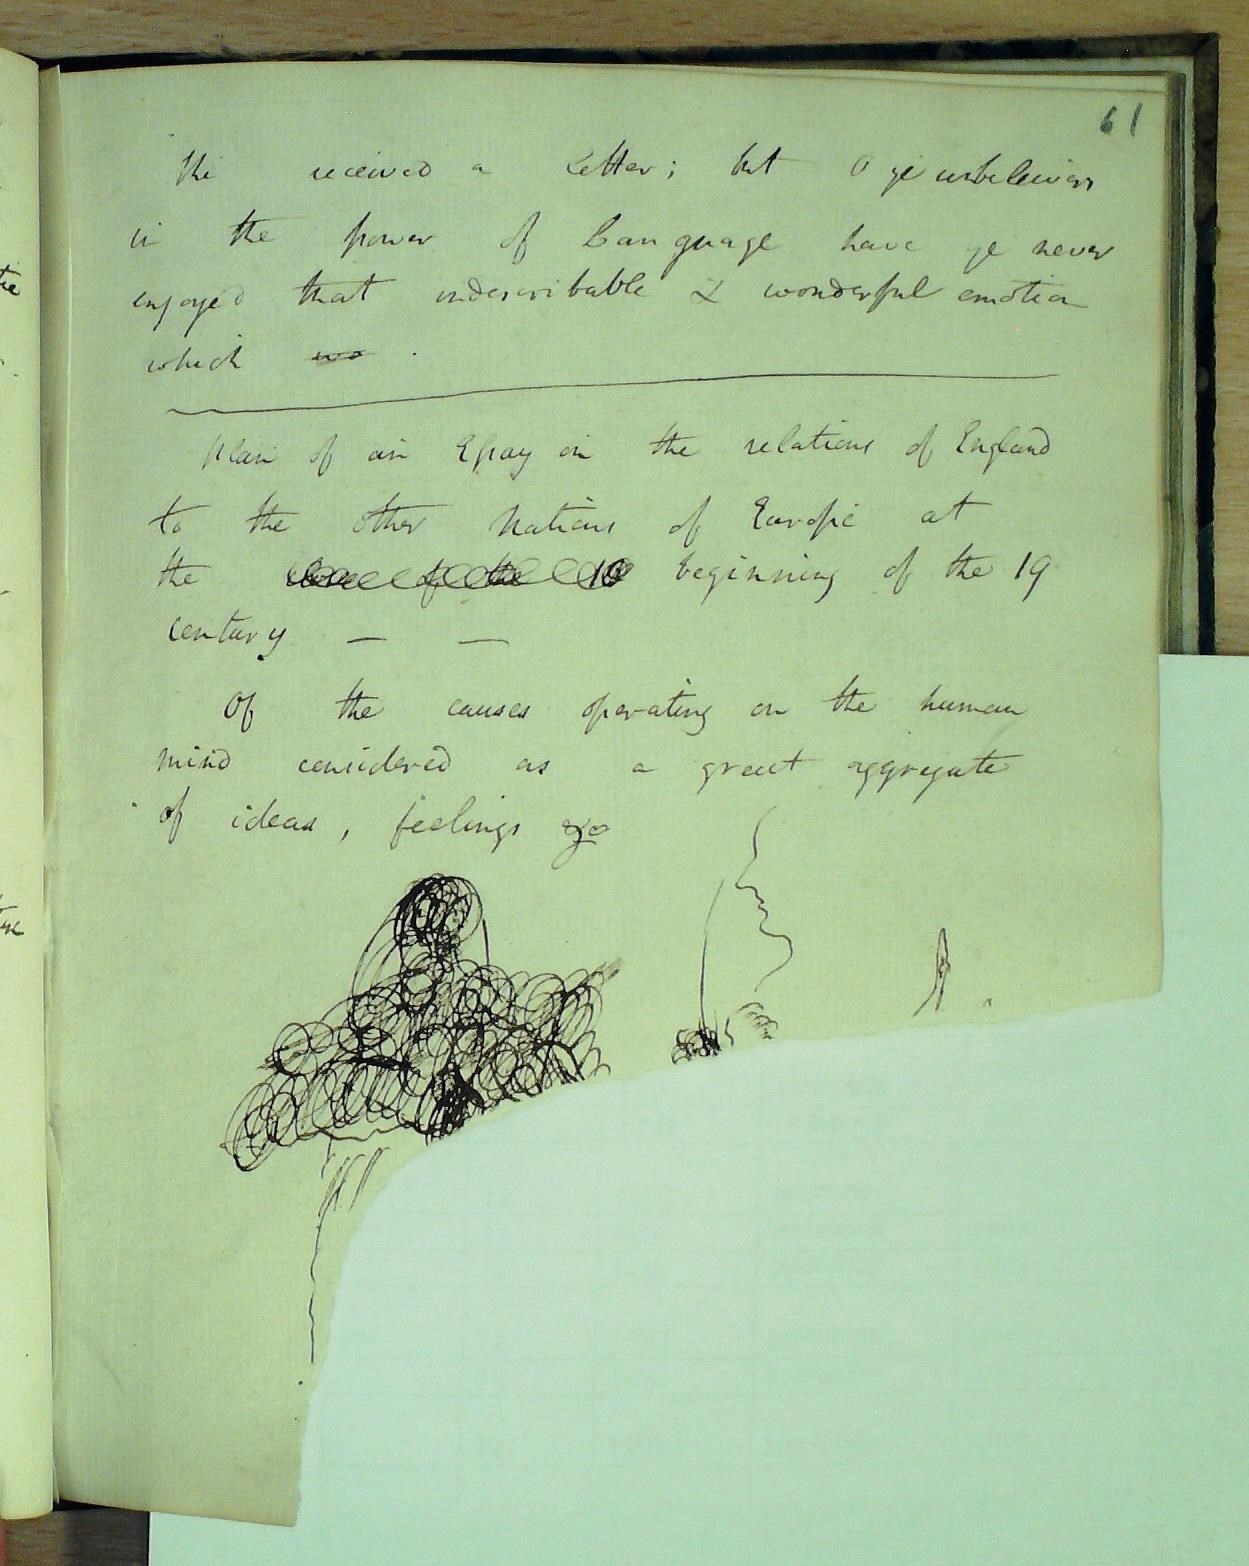 61
the received a Letter; but O ye unbeleivers
in the power of Language have ye never
enjoyed that indescribable & wonderful emotion
which wo.
Plan of an Essay on the relations of England
to the other Nations of Europe at
the close of the 18 beginning of the 19
century — —
Of the causes operating on the human
mind considered as a great aggregate
of ideas, feelings &c